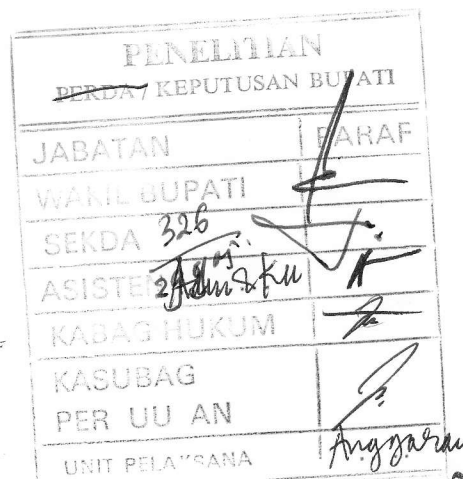 PENELITIAN
PERDA / KEPUTUSAN BUPATI
JABATAN PARAF
WAKIL BUPATI
SEKDA 326
ASISTEN Adm & KU
KABAG HUKUM
KASUBAG
PER UU AN
UNIT PELAKSANA Anggaran